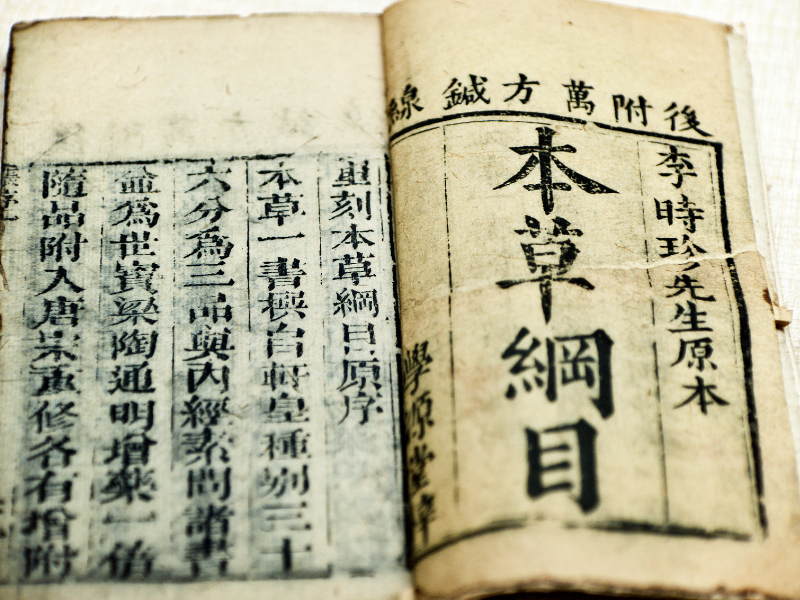 後附萬方鍼線
李時珍先生原本
本草綱目
學源堂
重刻本草綱目原序
本草一書撰自軒皇種別三十
六分爲三品與内經素問諸書
並爲世寳梁陶通明增藥一倍
隨品附入唐宋重修各有增附